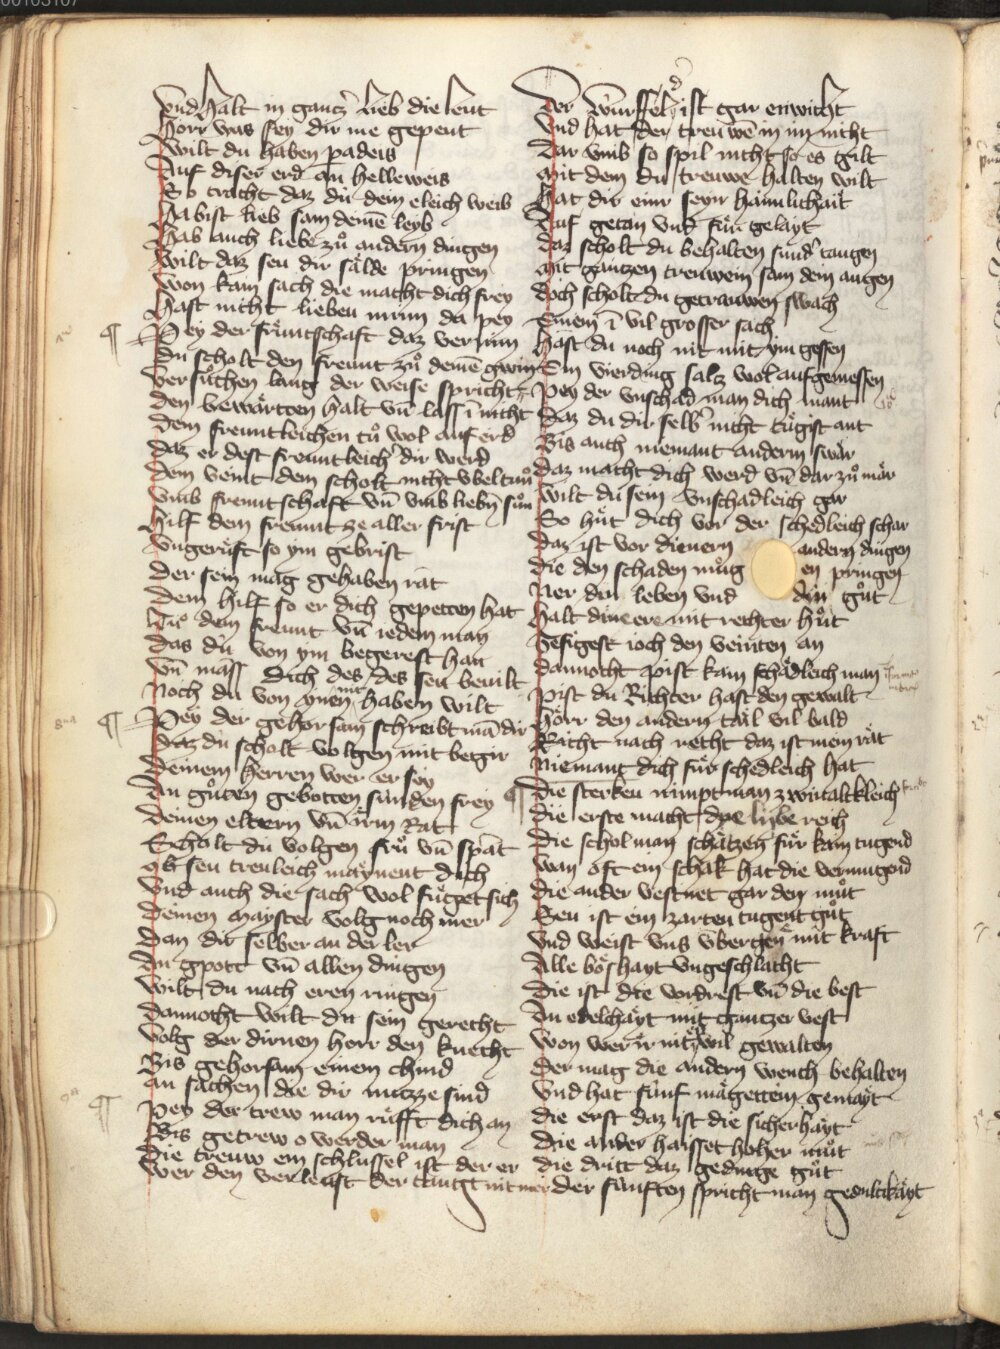 Vnd halt in gantzer lieb die leut
Hörr was sey dir me gepeut
Wilt du haben padeis
Auf diser erd an helleweis
So tracht daz du dein eleich weib
Habist lieb sam deinē leyb
Hab auch liebe zů andern dingen
Wilt daz seu dir sälde pringen
Won kain sach die macht dich frey
Hast nicht lieben minn da pey
Pey der fräuntschaft daz vernim
Du scholt den freunt zů deinē gwin
Versůchen lang der weise spricht
Den bewärtten halt vn̄ lass ī nicht
Dem freuntleichen tů wol auf erd
Daz er dest freuntleicher dir werd
Dem veint dem scholt nicht vbel tuon
Vmb freuntschaft vn̄ vmb liebn̄ suon
Hilf dem freunt ze aller frist
Vngerůft so ym gebrist
Der sein mag gehaben rät
Dem hilf so er dich gepetten hat
Tů dem freunt vn̄ iedem man
Das du von ym begerest han
Vn̄ mass dich des des seu beuilt
Noch du von ynen mit haben wilt
Pey der gehorsam schreibt mā dir
Daz du scholt volgen mit begir
Deinem herren wer er sey
In gůten gebotten sunden frey
Deinen eltern vn̄ irm rat
Scholt du volgen frů vn̄ spät
Ob seu treuleich maynent dich
Vnd auch die sach wol füget sich
Deinen mayster volg noch mer
Dan dir selber an der ler
An gpott vn̄ allen dingen
Wilt du nach eren ringen
Dannocht wilt du sein gerecht
Volg der dirnen herr den knecht
Bis gehorsam einem chind
An sachen die dir nutze sind
Pey der trew man rüfft dich an
Bis getrew o werder man
Die treuw ein schlussel ist der er
Wer den verleust der taugt nit mer
Der würffel ist gar enwicht
Vnd hat der treuwē in im nicht
Dar vmb so spil nicht so es gilt
Mit dem du treuwe halten wilt
Hat dir einr seyn hämlichait
Auf getan vnd für gelayt
Daz scholt du behalten sunder taugen
Mit gantzen treuwein sam dein augen
Doch scholt du getrauwen swach
Einem ī vil grosser sach
Hast du noch nit mit ym gessen
Ein vierding saltz wol aufgemessen
Pey der vnschad man dich mant
Daz du dir selber nicht tügist ant
Bis auch niemant anderm swär
Daz macht dich werd vn̄ dar zů mär
Wilt du sein vnschadleich gar
So hüt dich vor der schedleich schar
Daz ist vor dienern andern dingen
Die den schaden müg en pringen
Ner din leben vnd din gůt
Halt din eere mit rechter hůt
Gesigest ioch den veinten an
Dannocht pist kain schädleich man
Pist du Richter hast den gewalt
Hörr den andern tail vil bald
Richt nach recht daz ist mein rät
Niemant dich für schedleich hat
Die sterken nimpt man zwiualtkleich
Die erste macht dye lybe reich
Die schol man schätzen für kain tugend
Wan oft ein schalk hat die vermugend
Die ander vestnet gar den můt
Seu ist ein zarten tugent gůt
Vnd weist vns vbergen mit kraft
Alle böshayt vngeschlacht
Die ist die vordrest vn̄ die best
An edelchäyt mit gantzer vest
Won wer ir nit wil gewalten
Der mag die andern wench behalten
Vnd hat fünf mägettein gemayt
Die erst daz ist die sicherhäyt
Die ander haisset hoher můt
Die dritt daz gedinge gůt
Der fünften spricht man gedultikäyt